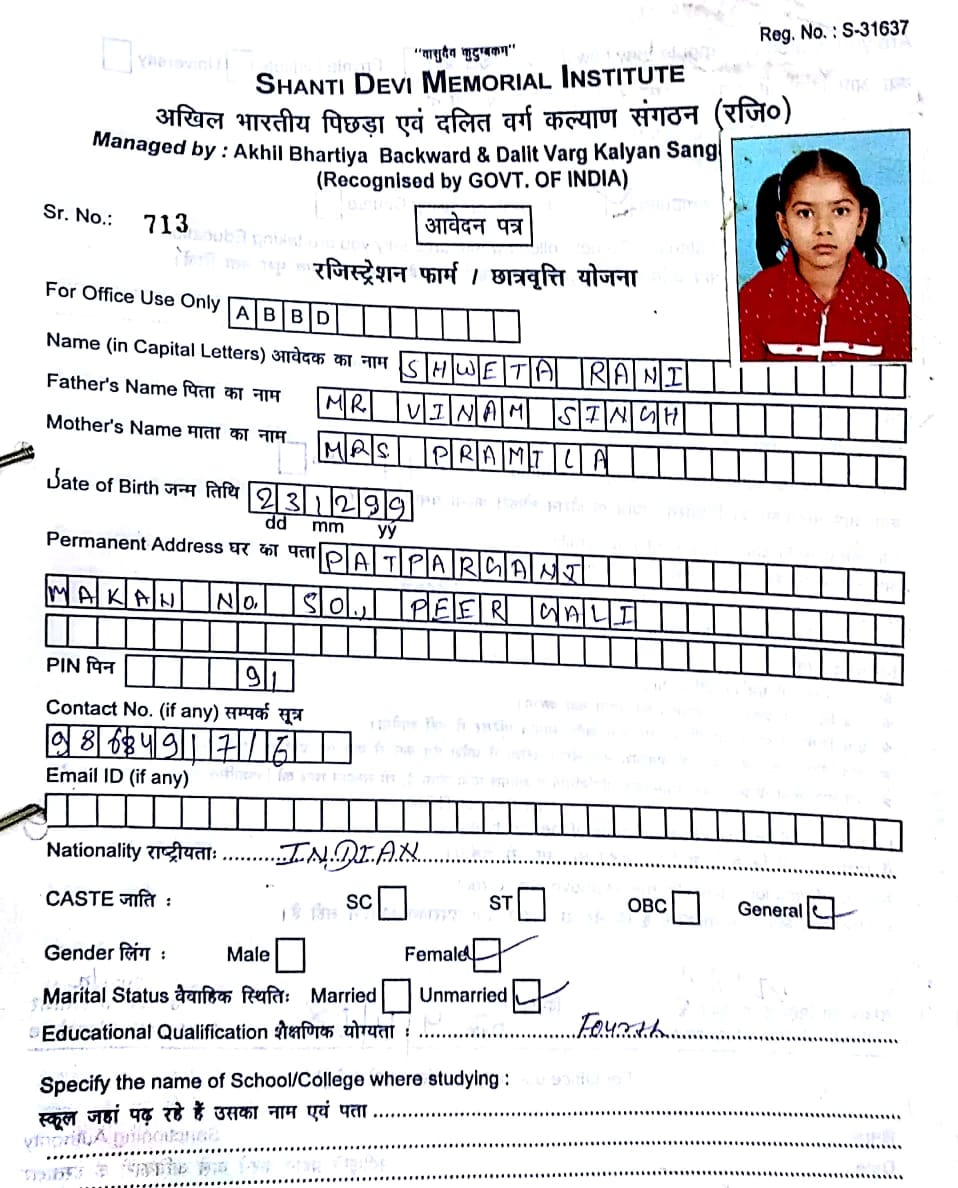 Reg. No. : S-31637
"वासुदैव कुटुम्बकम"
SHANTI DEVI MEMORIAL INSTITUTE
अखिल भारतीय पिछड़ा एवं दलित वर्ग कल्याण संगठन (रजि०)
Managed by : Akhil Bhartiya Backward & Dalit Varg Kalyan Sang
(Recognised by GOVT. OF INDIA)
Sr. No.: 713
आवेदन पत्र
रजिस्ट्रेशन फार्म / छात्रवृत्ति योजना
For Office Use Only ABBD
Name (in Capital Letters) आवेदक का नाम SHWETA RANI
Father's Name पिता का नाम MR VINAM SINGH
Mother's Name माता का नाम MRS PRAMILA
Date of Birth जन्म तिथि 231299
dd mm yy
Permanent Address घर का पता PATPARGANJ
MAKAN NO. 50., PEER GALI
PIN पिन 91
Contact No. (if any) सम्पर्क सूत्र
9868491716
Email ID (if any)
Nationality राष्ट्रीयताः INDIAN
CASTE जाति : SC ST OBC General
Gender लिंग : Male Female
Marital Status वैवाहिक स्थितिः Married Unmarried
Educational Qualification शैक्षणिक योग्यता : Fourth
Specify the name of School/College where studying :
स्कूल जहां पढ़ रहे हैं उसका नाम एवं पता